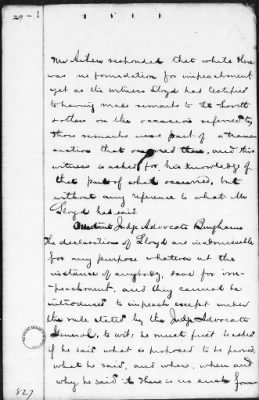 29-
Mr Aiken responded that while there
was no foundation for impeachment
yet as the witness Lloyd has testified
to having made remarks to Mr Lovett
& others on the occasion referred to
those remarks was part of a trans-
action that occurred there, and this
witness is asked for his knowledge of
that part of what occurred, but
without any reference to what Mr
Lloyd had said.
Assistant Judge Advocate Bingham
The declarations of Lloyd are inadmissible
for any purpose whatever at the
instance of anybody, save for im-
-peachment, and they cannot be
introduced to impeach except under
the rule stated by the Judge Advocate
General, to wit: he must first be asked
if he said what is proposed to be proved,
what he said, and where, when and
why he said it. There is no such foun-
527